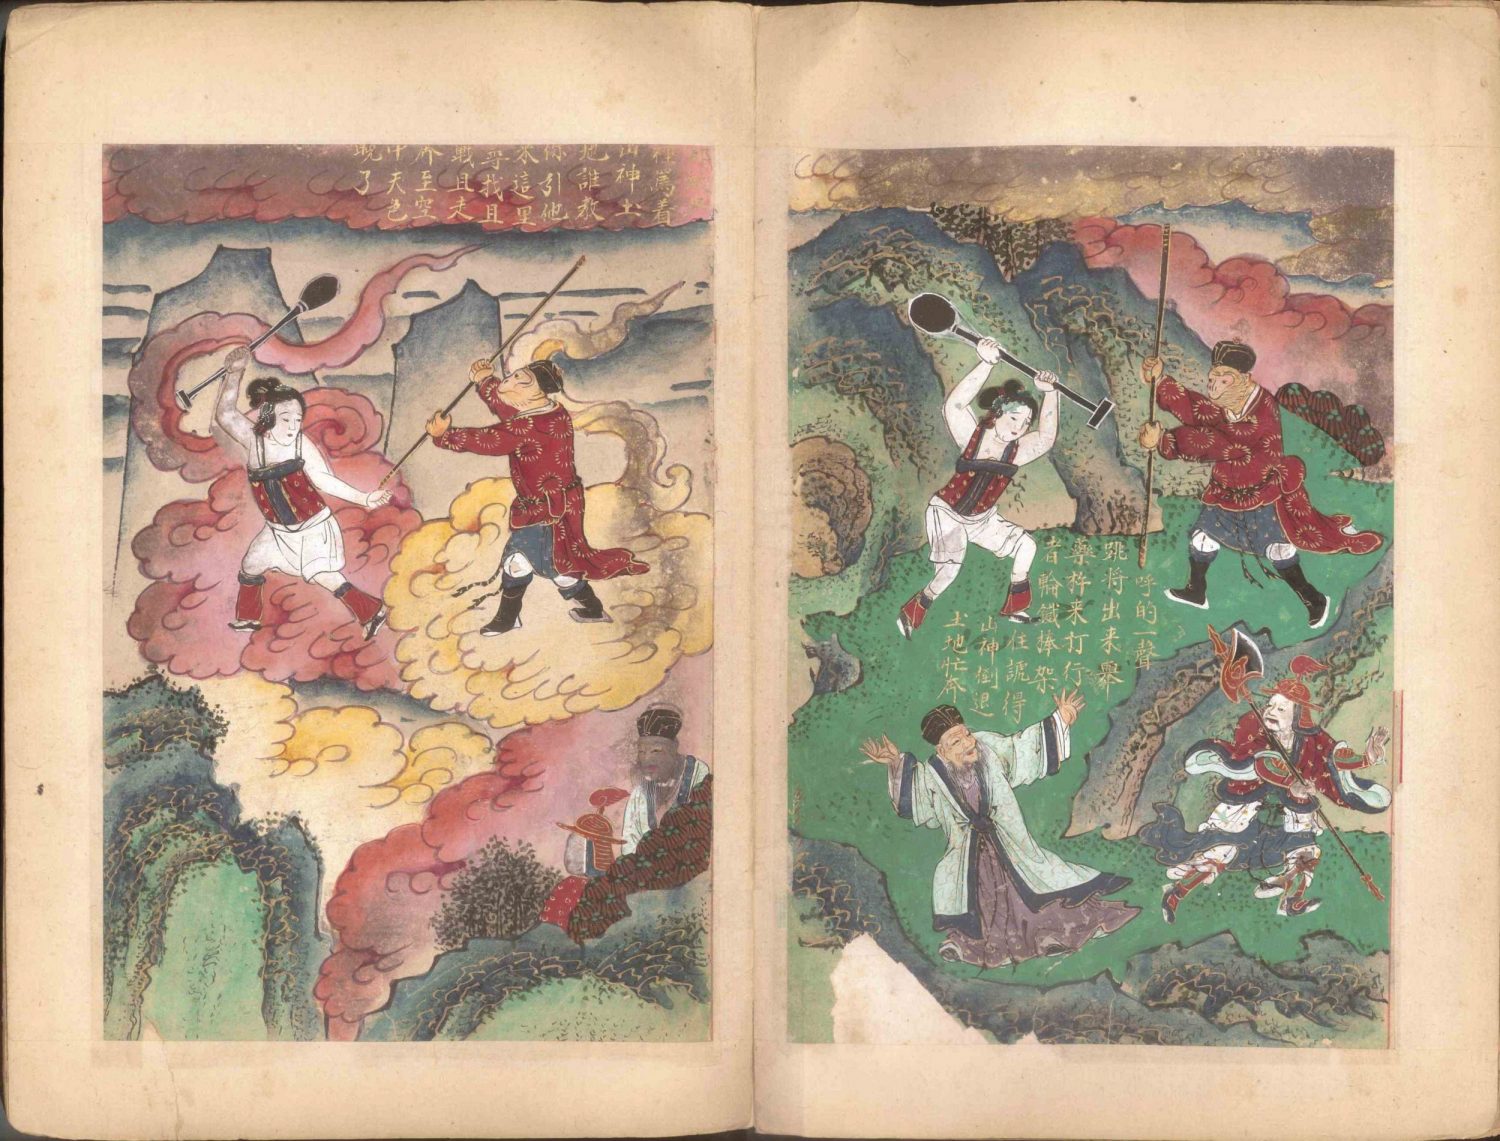 呼的一聲
跳將出来舉
藥杵来打行
者輪鐵棒架
住諕得
山神倒退
土地忙奔
罵着
山神土
地誰教
你引他
来這里
尋找且
戰且走
奔至空
中天色
晚了